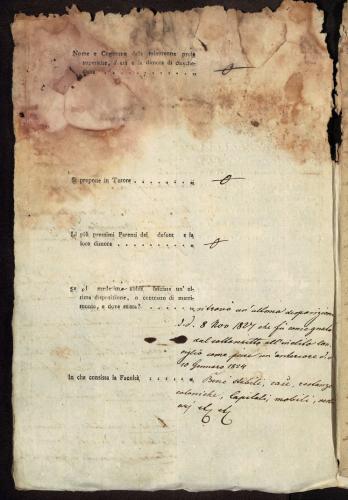 Nome e Cognome della minorenne prole
superstite, d'età e la dimora di ciasche-
O
Si propone in Tutore
O
Li più prossimi Parenti del defont e la
loro dimora
O
Se el medesimo abbia lasciato un' ul-
tima disposizione, o contratto di matri-
monio, e dove esista?
si trovò un' ultima disposizione
d.d. 8 Nov 1827 che fù consegnata
dal sottoscritto all'
come pure un' anteriore d.d.
10 Gennaro 1824
In che consista la Facoltà
Beni stabili, case,
coloniche, Capitali, mobili,